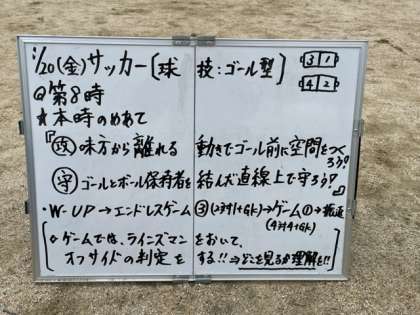 1/20(金)サッカー〔球技:ゴール型〕
3 1
4 2
◎第8時
★本時のめあて
『攻味方から離れる動きでゴール前に空間をつくろう!
守ゴールとボール保持者を結んだ直線上で守ろう!』
・W-UP→エンドレスゲーム③(2対1+GK)→ゲーム①→
(4対4+GK)
◇ゲームでは、ラインズマンをおいて、
オフサイドの判定をする!!⇒どこを見るか理解を!!